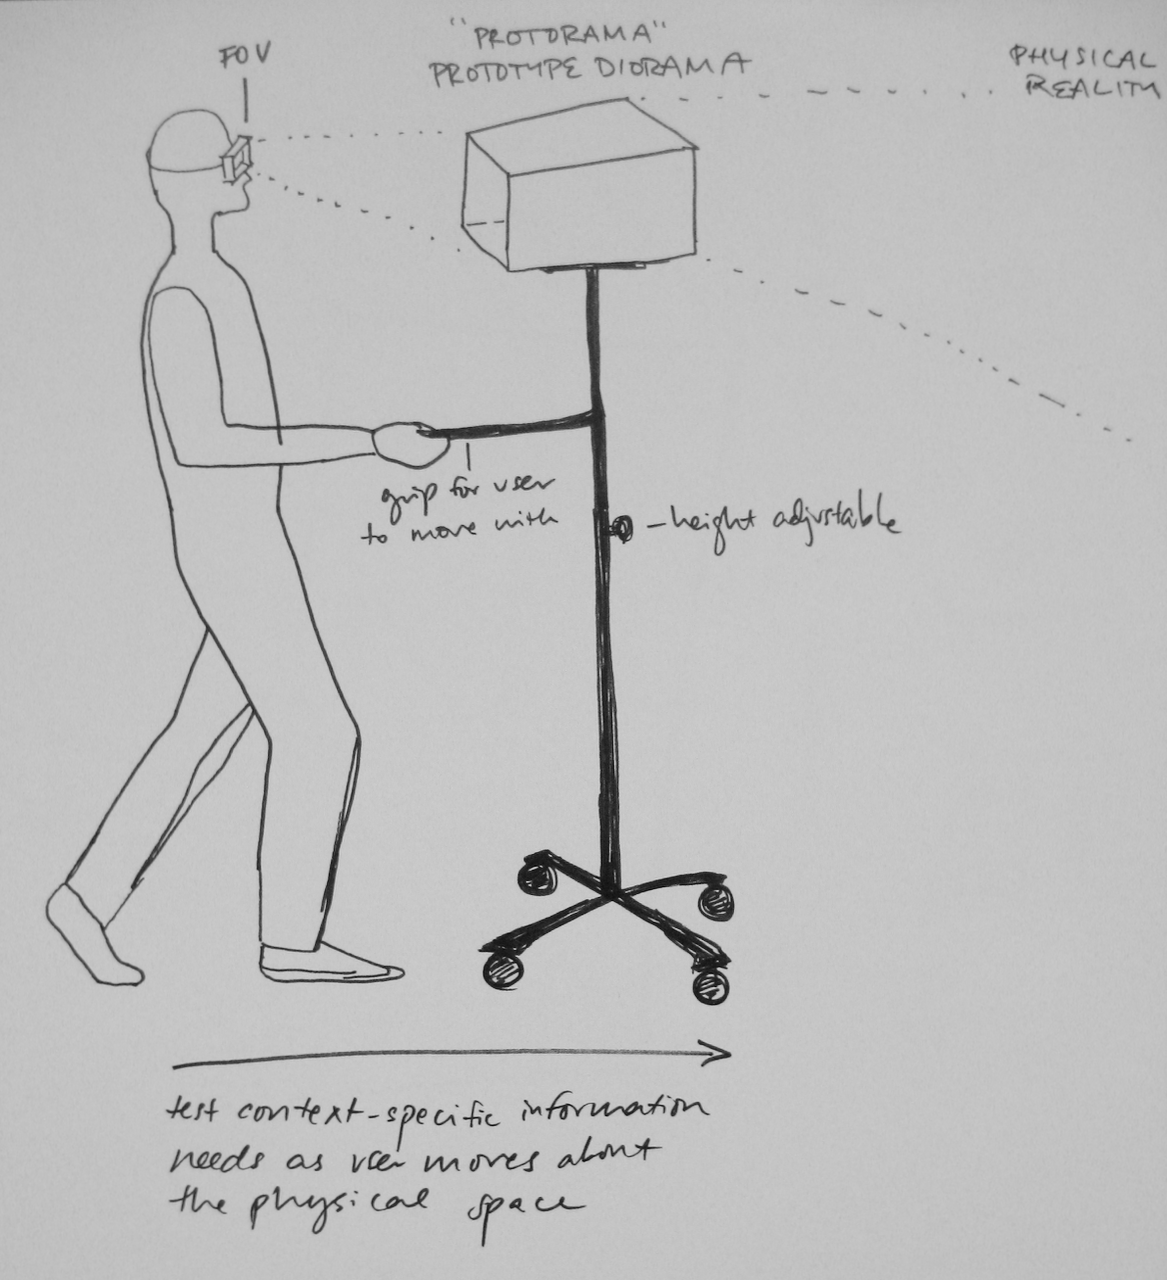 FOV
"PROTORAMA"
PROTOTYPE DIORAMA
PHYSICAL
REALITY
grip for user
to move with
- height adjustable
test context-specific information
needs as user moves about
the physical space